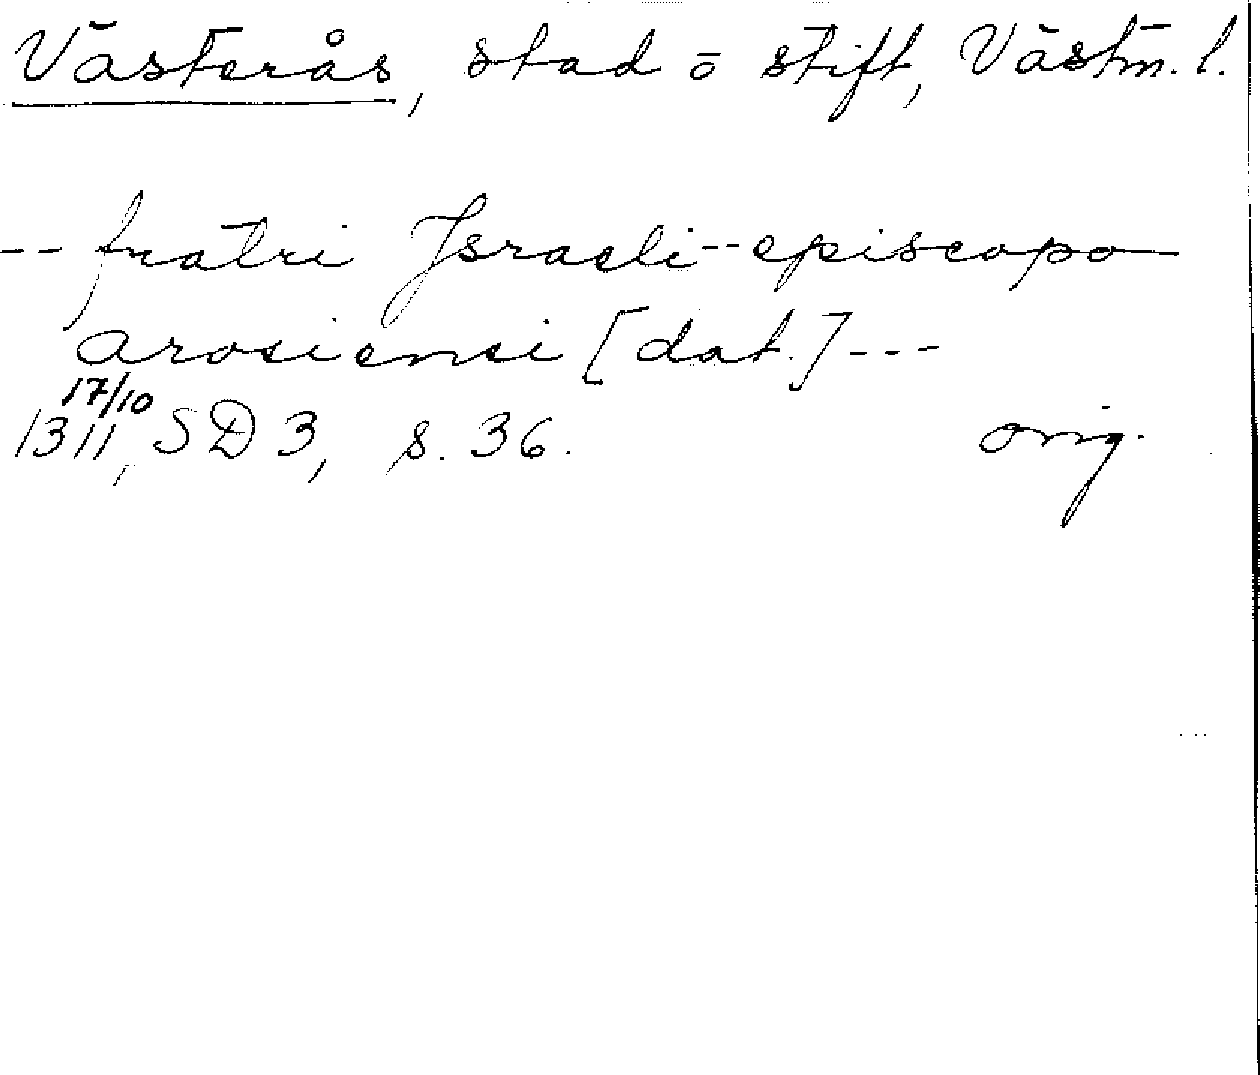 Västerås, stad o stift, Västm. l.
-- fratri Israeli -- episcopo
arosiensi [dat.] ---
17/10
1311, SD 3, s. 36. orig.